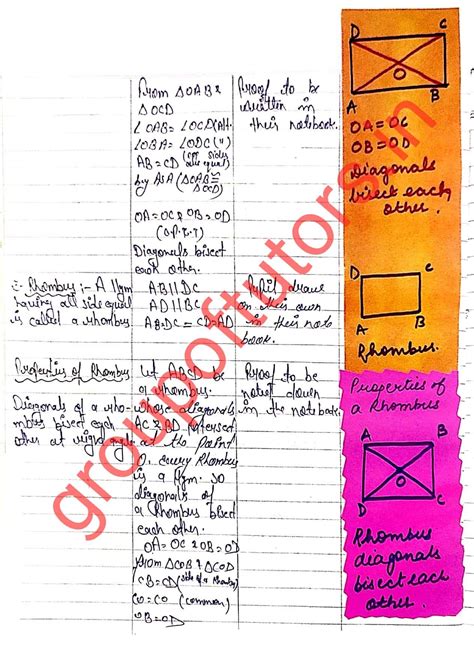 From ΔOAB &
ΔOCD
∠OAB = ∠OCD (Alt.
∠OBA = ∠ODC (")
AB = CD (opp sides are equal)
by ASA (ΔOAB ≅ ΔOCD)
OA = OC & OB = OD
(C.P.C.T)
Diagonals bisect
each other.
Proof to be
written in
their notebook.
D C
O
A B
OA = OC
OB = OD
Diagonals
bisect each
other.
Rhombus :- A llgm
having all side equal
is called a rhombus.
AB || DC
AD || BC
AB = DC = CD = AD
Pupil draws
on their own
in their note
book.
D C
A B
Rhombus.
Properties of Rhombus
Diagonals of a rho-
mbus bisect each
other at right angle
Let ABCD be
a rhombus.
whose diagonals
AC & BD intersect
at the point
O. every Rhombus
is a llgm. so
diagonals of
a Rhombus bisect
each other.
OA = OC & OB = OD
From ΔCOB & ΔCOD
CB = CD (side of a Rhombus)
CO = CO (common)
OB = OD
Proof to be
noted down
in the notebook.
Properties of
a Rhombus
A B
O
D C
Rhombus
diagonals
bisect each
other.
groupoftutors.in